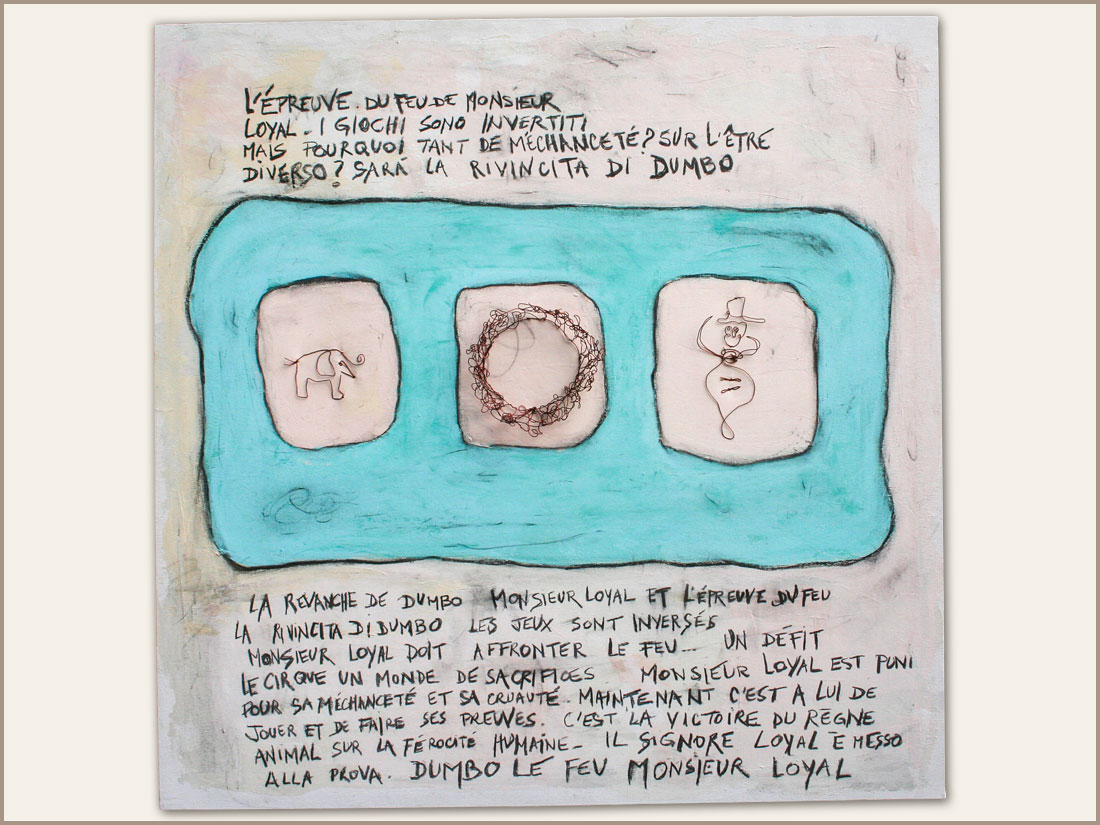 L'ÉPREUVE. DU FEU DE MONSIEUR
LOYAL. I GIOCHI SONO INVERTITI
MAIS POURQUOI TANT DE MÉCHANCETÉ? SUR L'ÊTRE
DIVERSO? SARÀ LA RIVINCITA DI DUMBO
LA REVANCHE DE DUMBO MONSIEUR LOYAL ET L'ÉPREUVE DU FEU
LA RIVINCITA DI DUMBO LES JEUX SONT INVERSÉS
MONSIEUR LOYAL DOIT AFFRONTER LE FEU... UN DÉFIT
LE CIRQUE UN MONDE DE SACRIFICES MONSIEUR LOYAL EST PUNI
POUR SA MÉCHANCETÉ ET SA CRUAUTÉ. MAINTENANT C'EST A LUI DE
JOUER ET DE FAIRE SES PREUVES. C'EST LA VICTOIRE DU RÈGNE
ANIMAL SUR LA FÉROCITÉ HUMAINE - IL SIGNORE LOYAL È MESSO
ALLA PROVA. DUMBO LE FEU MONSIEUR LOYAL